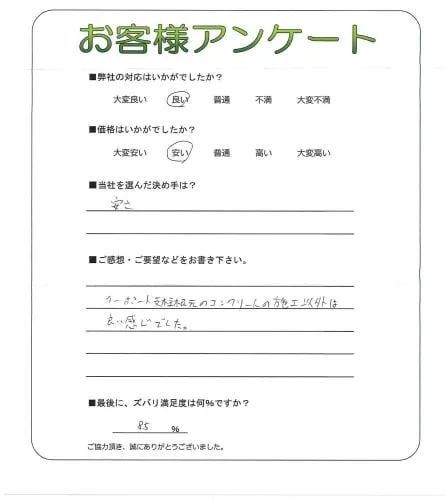 お客様アンケート
■弊社の対応はいかがでしたか？
大変良い 良い 普通 不満 大変不満
■価格はいかがでしたか？
大変安い 安い 普通 高い 大変高い
■当社を選んだ決め手は？
安さ
■ご感想・ご要望などをお書き下さい。
カーポート 根元のコンクリートの施工以外は
良い感じでした。
■最後に、ズバリ満足度は何%ですか？
85 %
ご協力頂き、誠にありがとうございました。